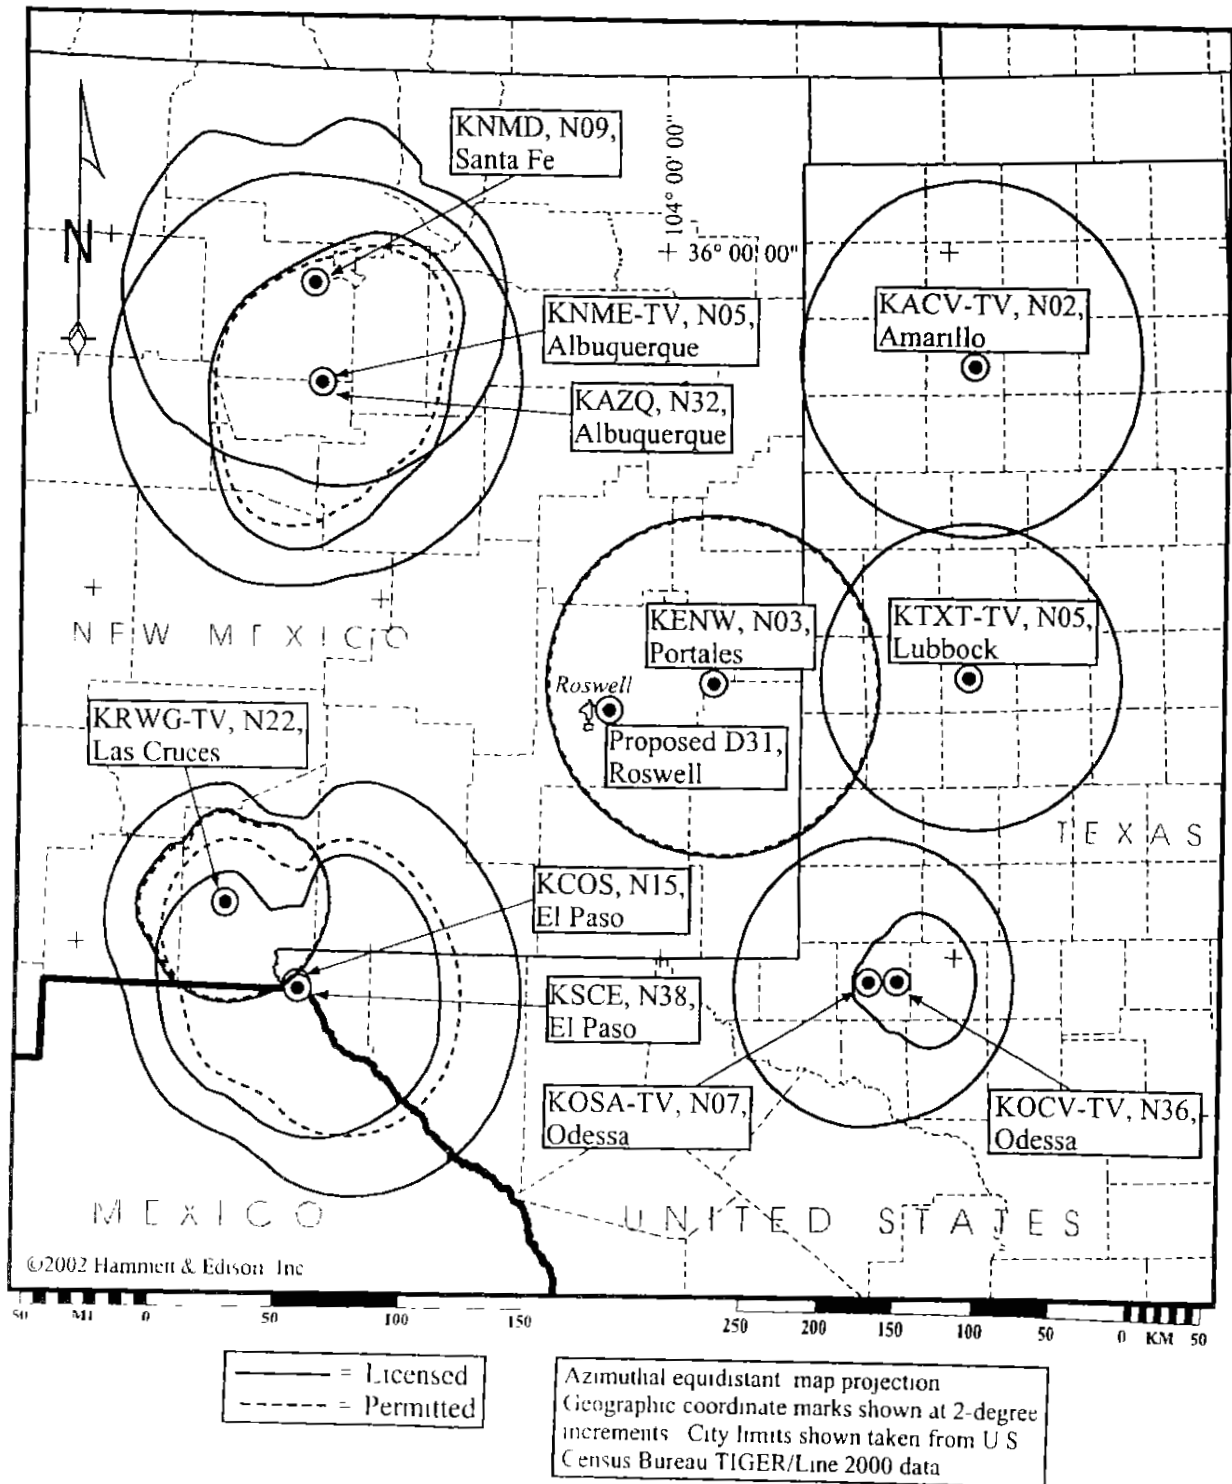 KNMD, N09,
Santa Fe
104° 00' 00"
36° 00' 00"
N
KNME-TV, N05,
Albuquerque
KACV-TV, N02,
Amarillo
KAZQ, N32,
Albuquerque
NEW MEXICO
KENW, N03,
Portales
KTXT-TV, N05,
Lubbock
Roswell
KRWG-TV, N22,
Las Cruces
Proposed D31,
Roswell
TEXAS
KCOS, N15,
El Paso
KSCE, N38,
El Paso
KOSA-TV, N07,
Odessa
KOCV-TV, N36,
Odessa
MEXICO
UNITED STATES
©2002 Hammett & Edison Inc
50 MI 0 50 100 150
250 200 150 100 50 0 KM 50
= Licensed
= Permitted
Azimuthal equidistant map projection
Geographic coordinate marks shown at 2-degree
increments City limits shown taken from U S
Census Bureau TIGER/Line 2000 data